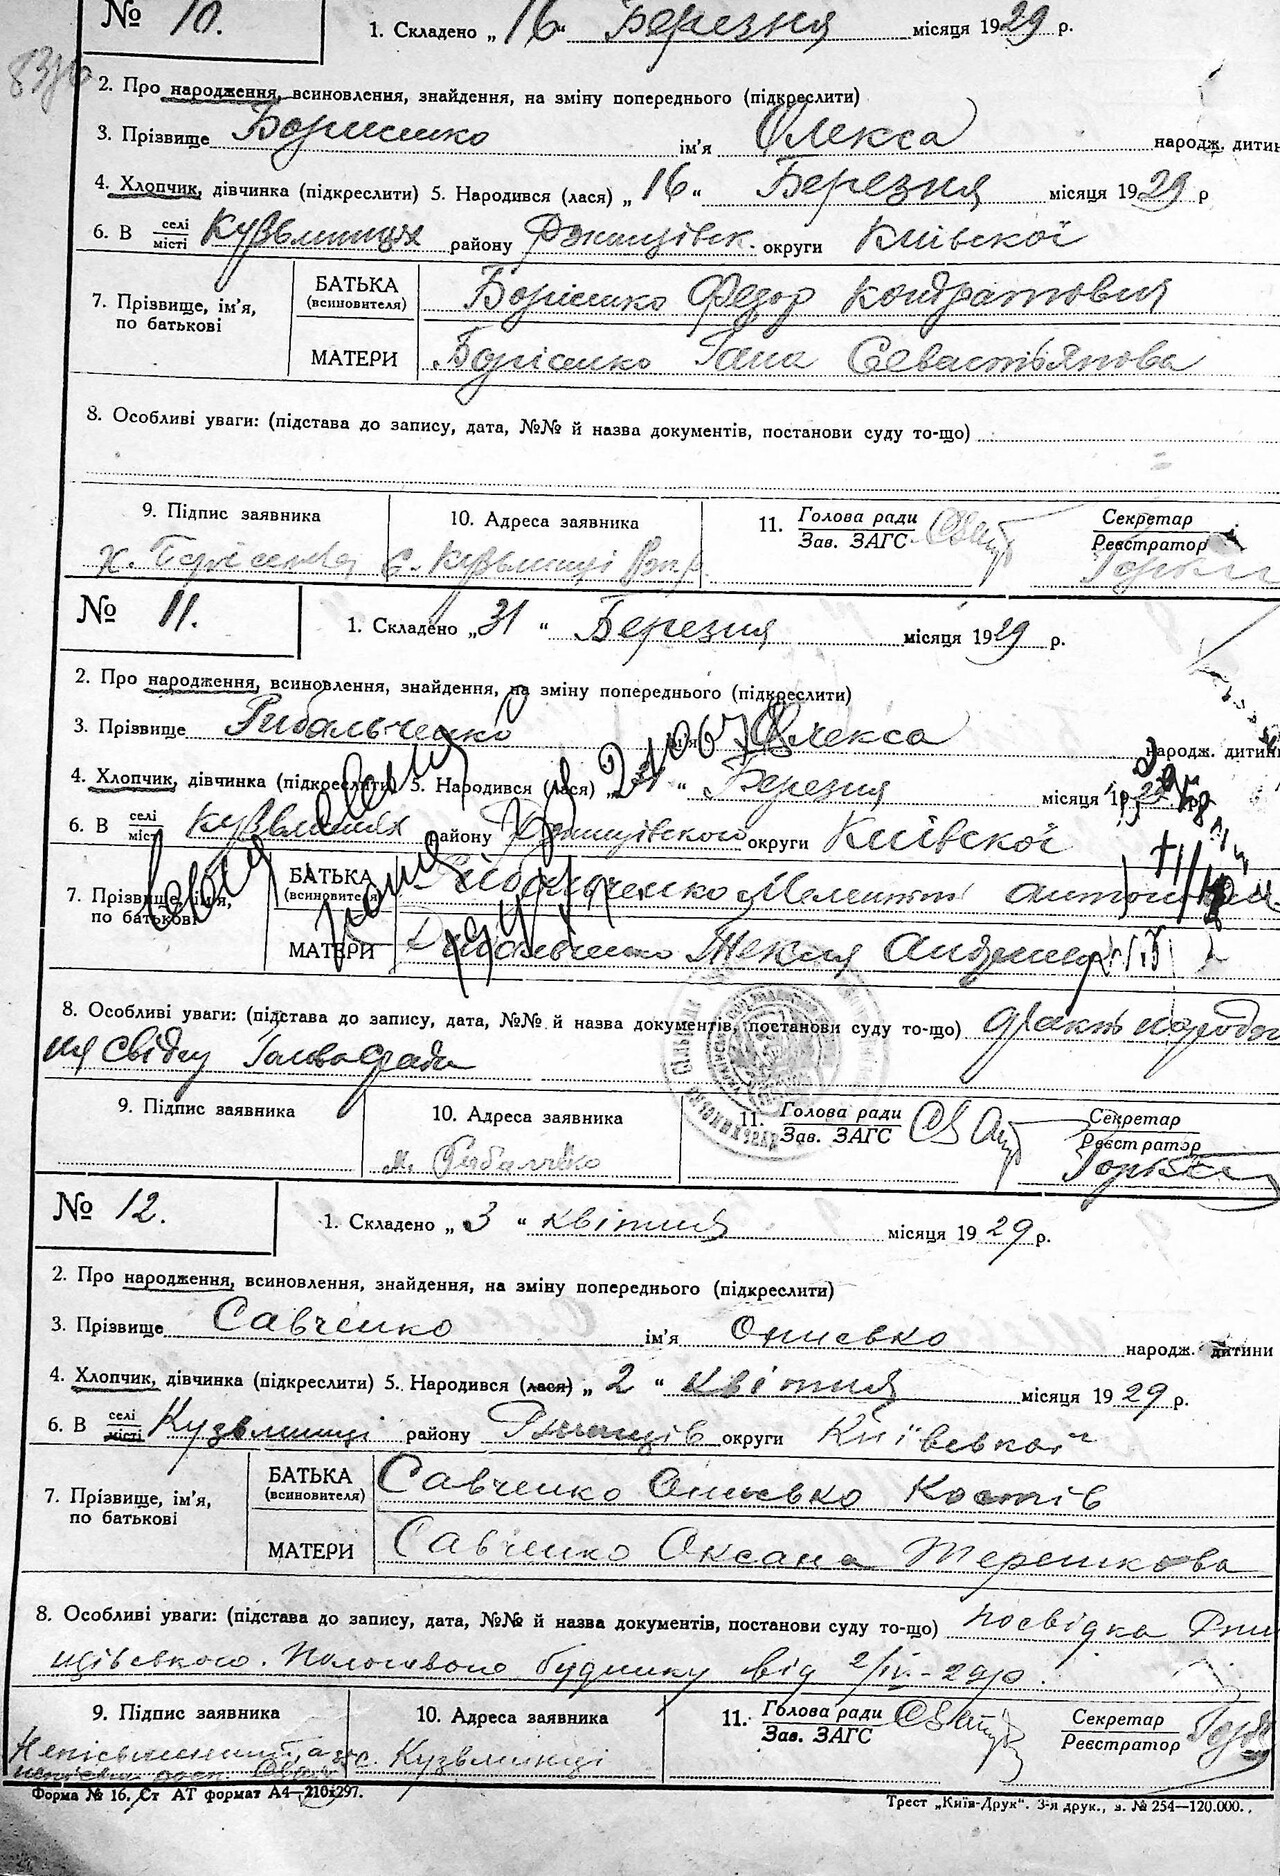 № 10.
1. Складено „16“ Березня місяця 1929 р.
2. Про народження, всиновлення, знайдення, на зміну попереднього (підкреслити)
3. Прізвище Борисенко ім'я Олекса народж. дитини
4. Хлопчик, дівчинка (підкреслити) 5. Народився (лася) „16“ Березня місяця 1929 р
6. В селі місті Кузьминцях району Ржищівск. округи Київської
7. Прізвище, ім'я, по батькові
БАТЬКА (всиновителя) Борісенко Федор Кондратович
МАТЕРИ Борісенко Гана Севастьянова
8. Особливі уваги: (підстава до запису, дата, №№ й назва документів, постанови суду то-що)
9. Підпис заявника
10. Адреса заявника
11. Голова ради Зав. ЗАГС
Секретар Реєстратор
с. Кузьминці
№ 11.
1. Складено „31“ Березня місяця 1929 р.
2. Про народження, всиновлення, знайдення, на зміну попереднього (підкреслити)
3. Прізвище Рибальченко ім'я Олекса народж. дитини
4. Хлопчик, дівчинка (підкреслити) 5. Народився (лася) „ “ Березня місяця 1929 р
6. В селі місті Кузьминцях району Ржищівского округи Київської
7. Прізвище, ім'я, по батькові
БАТЬКА (всиновителя) Рибальченко
МАТЕРИ Рибальченко Текля
8. Особливі уваги: (підстава до запису, дата, №№ й назва документів, постанови суду то-що) факт народже
ня свідчу Голова Сради
9. Підпис заявника
10. Адреса заявника
11. Голова ради Зав. ЗАГС
Секретар Реєстратор
№ 12.
1. Складено „3“ квітня місяця 1929 р.
2. Про народження, всиновлення, знайдення, на зміну попереднього (підкреслити)
3. Прізвище Савченко ім'я Онисько народж. дитини
4. Хлопчик, дівчинка (підкреслити) 5. Народився (лася) „2“ квітня місяця 1929 р.
6. В селі місті Кузьминці району Ржищів округи Київської
7. Прізвище, ім'я, по батькові
БАТЬКА (всиновителя) Савченко Онисько Костів
МАТЕРИ Савченко Оксана Терешкова
8. Особливі уваги: (підстава до запису, дата, №№ й назва документів, постанови суду то-що) посвідка Ржи
щівського Пологового будинку від 2/IV-29р.
9. Підпис заявника
10. Адреса заявника
11. Голова ради Зав. ЗАГС
Секретар Реєстратор
с. Кузьминці
Форма № 16. Ст АТ формат А4—210×297.
Трест „Київ-Друк“. 3-я друк., з. № 254—120.000.